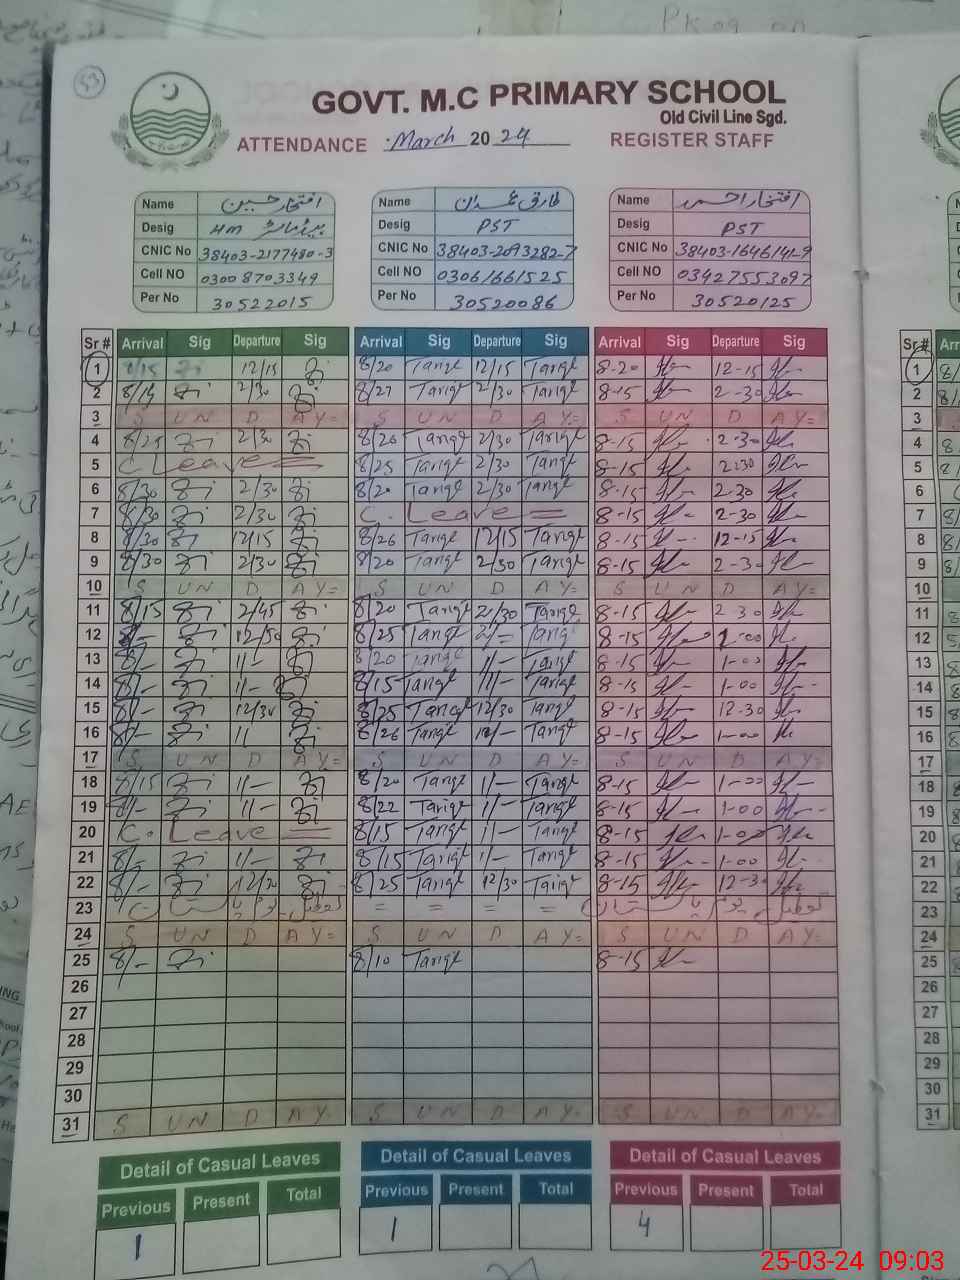 53
GOVT. M.C PRIMARY SCHOOL
Old Civil Line Sgd.
ATTENDANCE March 2024 REGISTER STAFF
Name افتخار حسین Name طارق Name افتخار احمد
Desig HM Desig PST Desig PST
CNIC No 38403-2177480-3 CNIC No 38403-2093282-7 CNIC No 38403-1646141-9
Cell NO 03008703349 Cell NO 03061661525 Cell NO 03427553097
Per No 30522015 Per No 30520086 Per No 30520125
Sr # Arrival Sig Departure Sig Arrival Sig Departure Sig Arrival Sig Departure Sig
1 12/15 8/20 12/15 8-20 12-15
2 8/15 2/30 8/27 2/30 8-15 2-30
3 S UN D AY= S UN D AY= S UN D AY=
4 8/25 2/30 8/20 2/30 8-15 2-30
5 C Leave 8/25 2/30 8-15 2-30
6 8/30 2/30 8/20 2/30 8-15 2-30
7 8/30 2/30 C. Leave 8-15 2-30
8 8/30 12/15 8/26 12/15 8-15 12-15
9 8/30 2/30 8/20 2/30 8-15 2-30
10 S UN D AY= S UN D AY= S UN D AY=
11 8/15 2/45 8/20 2/30 8-15 2-30
12 8/- 12/50 8/25 2/= 8-15 1-00
13 8/- 1/- 8/20 1/- 8-15 1-00
14 8/- 1/- 8/15 1/- 8-15 1-00
15 8/- 12/30 8/25 12/30 8-15 12-30
16 8/- 8/26 8-15 1-00
17 S UN D AY= S UN D AY= S UN D AY=
18 8/15 1/- 8/20 1/- 8-15 1-00
19 8/- 1/- 8/22 1/- 8-15 1-00
20 C. Leave 8/15 1/- 8-15 1-00
21 8/- 1/- 8/15 1/- 8-15 1-00
22 8/- 12/20 8/25 12/30 8-15 12-30
23 تعطیل یوم پاکستان = = = = تعطیل یوم پاکستان
24 S UN D AY= S UN D AY= S UN D AY=
25 8/- 8/10 8-15
26
27
28
29
30
31 S UN D AY= S UN D AY= S UN D AY=
Detail of Casual Leaves Detail of Casual Leaves Detail of Casual Leaves
Previous Present Total Previous Present Total Previous Present Total
1 1 4
25-03-24 09:03